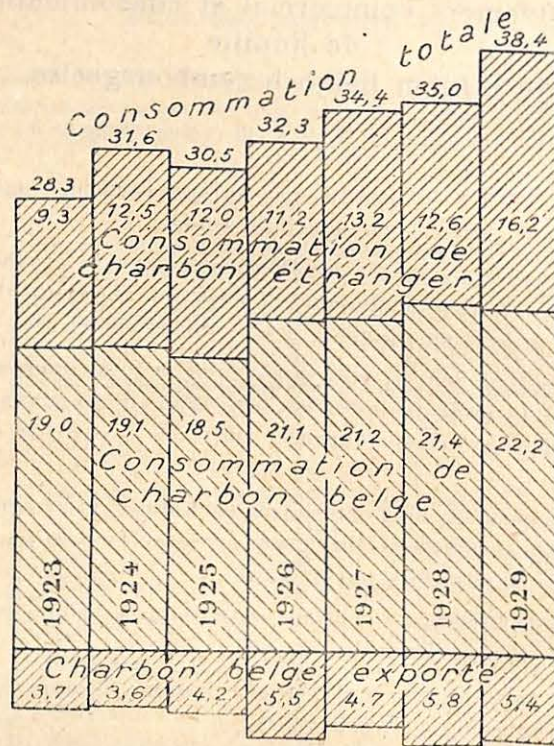 Consommation totale
28,3 31,6 30,5 32,3 34,4 35,0 38,4
9,3 12,5 12,0 11,2 13,2 12,6 16,2
Consommation de
charbon étranger
19,0 19,1 18,5 21,1 21,2 21,4 22,2
Consommation de
charbon belge
1923 1924 1925 1926 1927 1928 1929
Charbon belge exporté
3,7 3,6 4,2 5,5 4,7 5,8 5,4